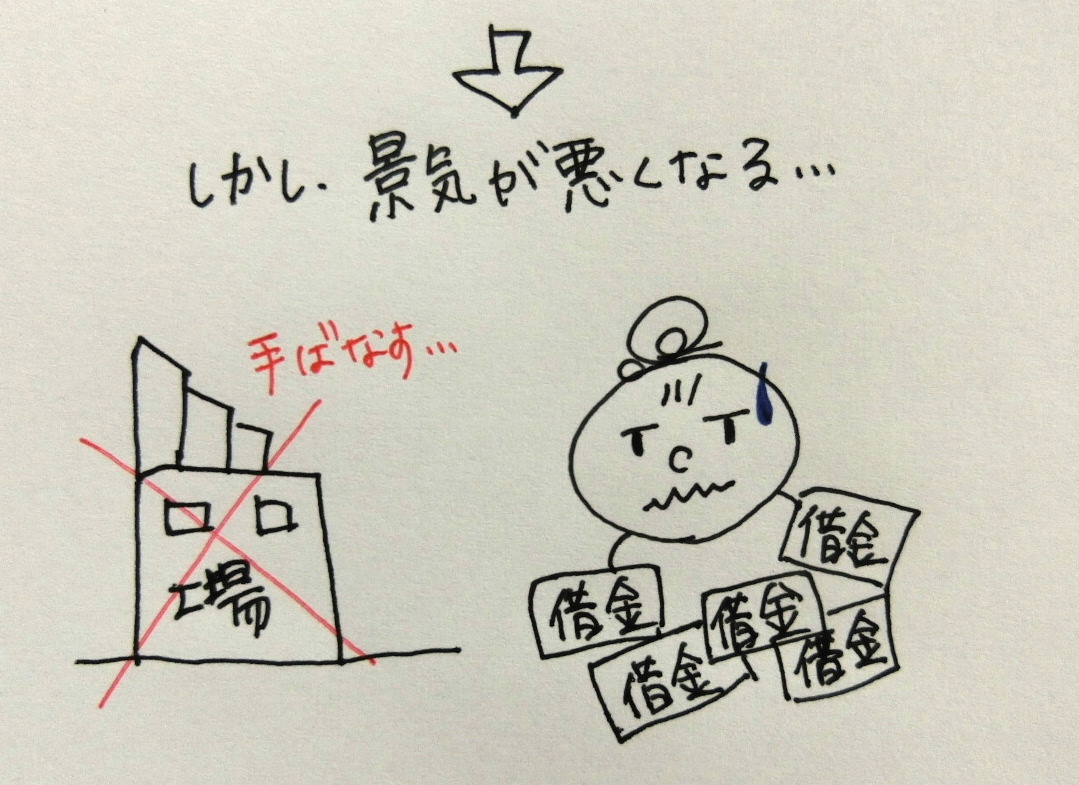 しかし、景気が悪くなる…
手ばなす…
工場
借金
借金
借金
借金
借金